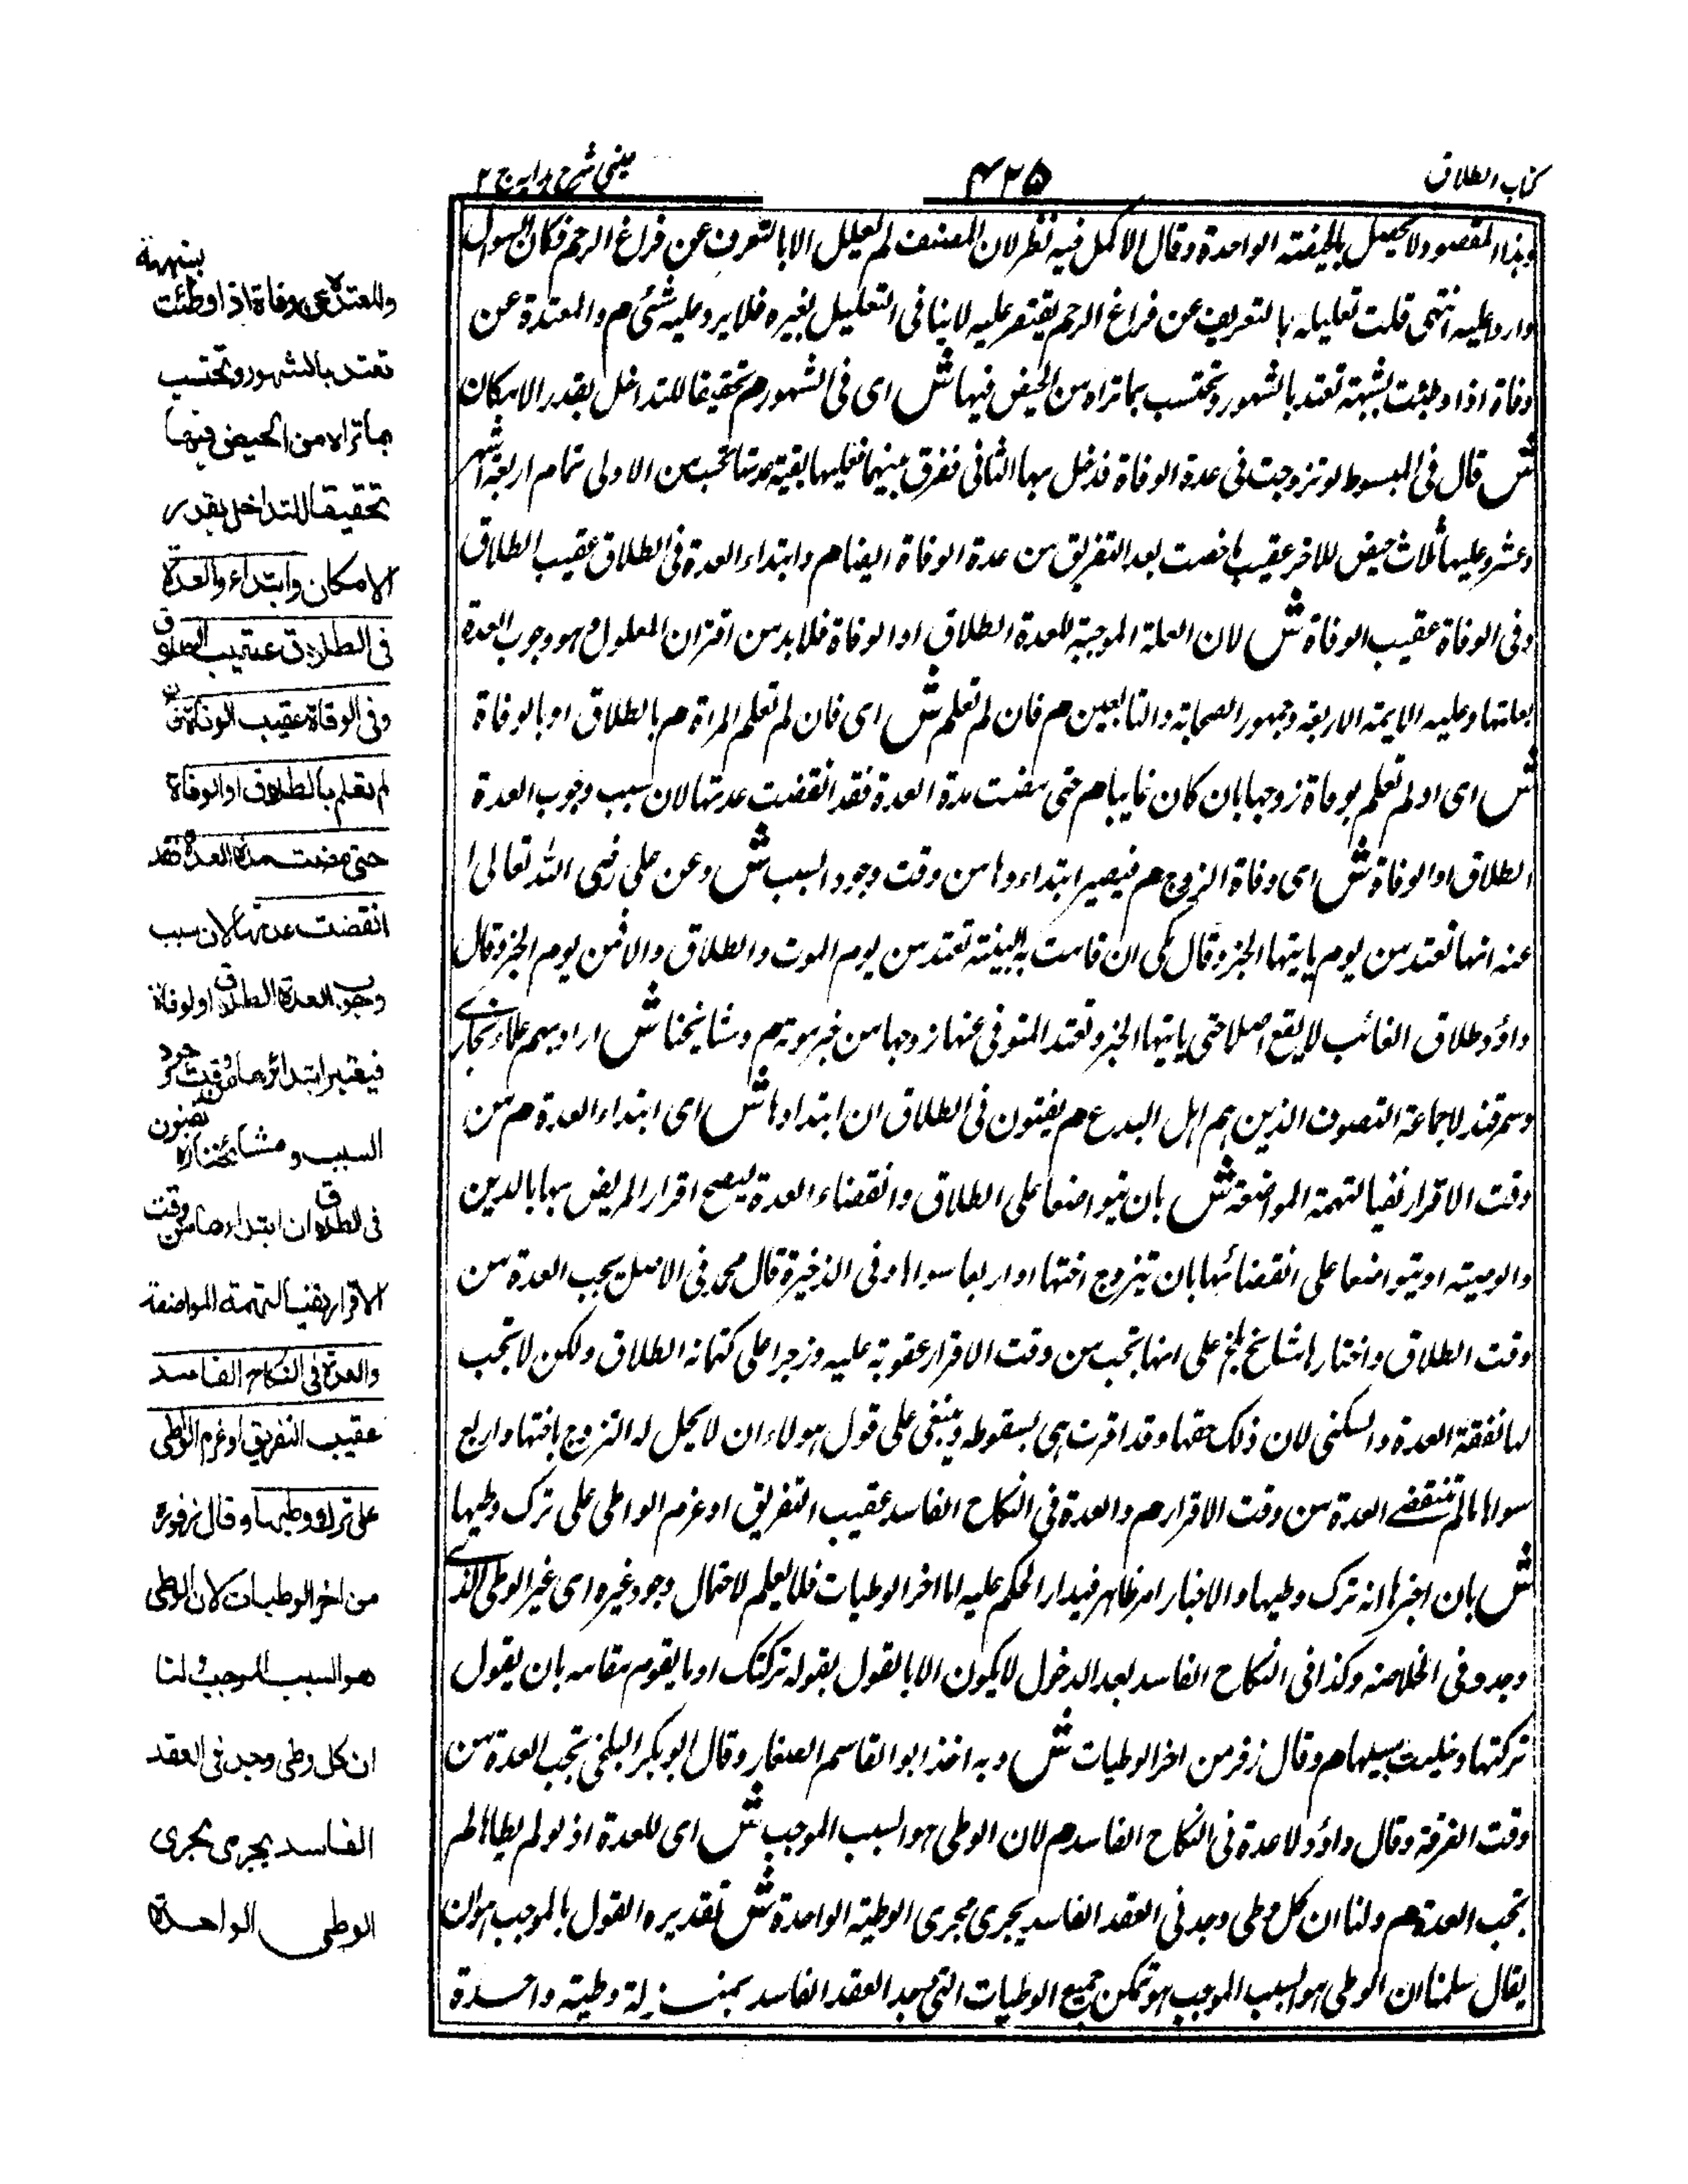 كتاب الطلاق
۴۲۵
عينى شرح هدايه ج ۲
وهذا المقصود لا يحصل بالحيضة الواحدة وقال الاكمل فيه نظر لان المصنف لم يعلل الا بالتعرف عن فراغ الرحم فكان السوال
واردا عليه انتهى قلت تعليله بالتعريف عن فراغ الرحم يقتصر عليه لاينافى التعليل بغيره فلايرد عليه شئ م والمعتدة عن
وفاة اذا وطئت بشبهة تعتد بالشهور وتحتسب بما تراه من الحيض فيها ش اى فى الشهور م تحقيقا للتداخل بقدر الامكان
ش قال فى المبسوط لو تزوجت فى عدة الوفاة فدخل بها الثانى ففرق بينهما فعليها بقية عدتها تحب من الاولى تمام اربعة اشهر
وعشر وعليها ثلاث حيض للاخر عقيب ماخصت بعد التفريق من عدة الوفاة ايضا م وابتداء العدة فى الطلاق عقيب الطلاق
وفى الوفاة عقيب الوفاة ش لان العلة الموجبة للعدة الطلاق او الوفاة فلابد من اقتران المعلول م هو وجوب العدة
بعلتها وعليه الايمة الاربعة وجمهور الصحابة والتابعين م فان لم تعلم ش اى فان لم تعلم المراة م بالطلاق او بالوفاة
ش اى او لم تعلم بوفاة زوجها بان كان غايبا م حتى مضت مدة العدة فقد انقضت عدتها لان سبب وجوب العدة
الطلاق او الوفاة ش اى وفاة الزوج م فيصير ابتداءوها من وقت وجود السبب ش وعن على رضى الله تعالى
عنه انها تعتد من يوم ياتيها الخبر وقال مكى ان قامت به البينة تعتد من يوم الموت والطلاق والا فمن يوم الخبر وقال
داؤد طلاق الغائب لايقع اصلا حتى ياتيها الخبر وتعتد المتوفى عنها زوجها من خبر موته م ومشايخنا ش اراد بهم علماء بخارى
وسمرقند لاجماعة التصوف الذين هم اهل البدع م يفتون فى الطلاق ان ابتداوها ش اى ابتداء العدة م من
وقت الاقرار نفيا لتهمة المواضعة ش بان يتواضعا على الطلاق وانقضاء العدة ليصح اقرار المريض بها بالدين
والوصية او يتواضعا على انقضائها بان يتزوج اختها او اربعا سواها وفى الذخيرة قال محمد فى الاصل يجب العدة من
وقت الطلاق واختارها مشايخ بلخ على انها تجب من وقت الاقرار عقوبة عليه وزجرا على كتمانه الطلاق ولكن لاتجب
لها نفقة العدة والسكنى لان ذلك حقها وقد اقرت هى بسقوطه وينبغى على قول هولاء ان لايحل له التزوج باختها واربع
سواها مالم تنقضى العدة من وقت الاقرار م والعدة فى النكاح الفاسد عقيب التفريق او عزم الواطى على ترك وطيها
ش بان اخبرها انه ترك وطيها والاخبار امر ظاهر فيدار الحكم عليه اما اخر الوطيات فلايعلم لاحتمال وجود غيره اى غير الوطى الذى
وجد وفى الخلاصة وكذا فى النكاح الفاسد بعد الدخول لايكون الا بالقول بقوله تركتك او ما يقوم مقامه بان يقول
تركتها وخليت سبيلها م وقال زفر من اخر الوطيات ش وبه اخذ ابو القاسم الصفار وقال ابو بكر البلخى تجب العدة من
وقت الفرقة وقال داؤد لاعدة فى النكاح الفاسد م لان الوطى هو السبب الموجب ش اى للعدة اذ لو لم يطاها لم
تجب العدة م ولنا ان كل وطى وجد فى العقد الفاسد يجرى مجرى الوطية الواحدة ش تقديره القول بالموجب هو ان
يقال سلمنا ان الوطى هو السبب الموجب هو تمكن جميع الوطيات التى بعد العقد الفاسد بمنزلة وطية واحدة
بشبهة
والمعتدة عن وفاة اذا وطئت
تعتد بالشهور وتحتسب
بما تراه من الحيض فيها
تحقيقا للتداخل بقدر
الامكان وابتداء والعدة
فى الطلاق عقيب الطلاق
وفى الوفاة عقيب الوفاة فان
لم تعلم بالطلاق او الوفاة
حتى مضت مدة العدة فقد
انقضت عدتها لان سبب
وجوب العدة الطلاق او لوفاة
فيعتبر ابتدائها من وقت وجود
السبب ومشايخنا يفتون
فى الطلاق ان ابتداءها من وقت
الاقرار نفيا لتهمة المواضعة
والعدة فى النكاح الفاسد
عقيب التفريق او عزم الواطى
على ترك وطيها وقال زفر
من اخر الوطيات لان الوطى
هو السبب الموجب ولنا
ان كل وطى وجد فى العقد
الفاسد يجرى مجرى
الوطى الواحدة